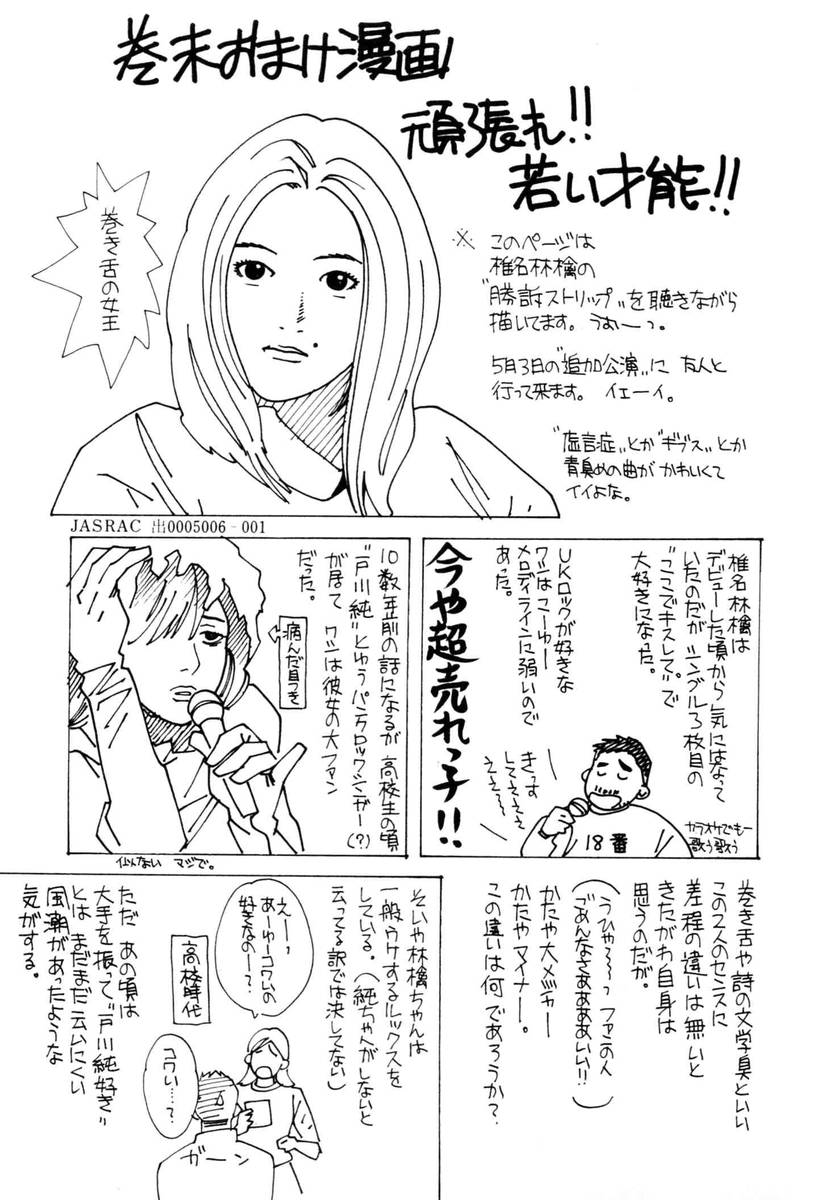 巻末おまけ漫画!
頑張れ!!
若い才能!!
巻き舌の女王
※ このページは
椎名林檎の
"勝訴ストリップ"を聴きながら
描いてます。うおーっ。
5月3日の"追加公演"に 友人と
行って来ます。 イエーイ。
"虚言症"とか"ギブス"とか
青臭めの曲が かわいくて
イイよな。
JASRAC 出0005006-001
椎名林檎は
デビューした頃から気にはなって
いたのだが シングル3枚目の
"ここでキスして。"で
大好きになった。
UKロックが好きな
ワシはこーゆー
メロディラインに弱いので
あった。
今や超売れっ子!!
きっす
してえええ
ええ〜〜
18番
カラオケでも
歌う歌う
10数年前の話になるが 高校生の頃
"戸川純"とゆうパンクロックシンガー(?)
が居て ワシは彼女の大ファン
だった。
病んだ目つき
似てない マジで。
巻き舌や詩の文学臭といい
この2人のセンスに
差程の違いは無いと
きたがわ自身は
思うのだが。
(うひゃ〜〜っ ファンの人
ごめんなさぁぁああいい!!)
かたや大メジャー
かたやマイナー。
この違いは何であろうか?
そいや林檎ちゃんは
一般ウケするルックスを
している。(純ちゃんがしないと
云ってる訳では決してない)
えーっ
あーゆーコワいの
好きなのー??
高校時代
コワい…?
ガーン
ただ あの頃は
大手を振って"戸川純好き"
とは まだまだ云いにくい
風潮があったような
気がする。